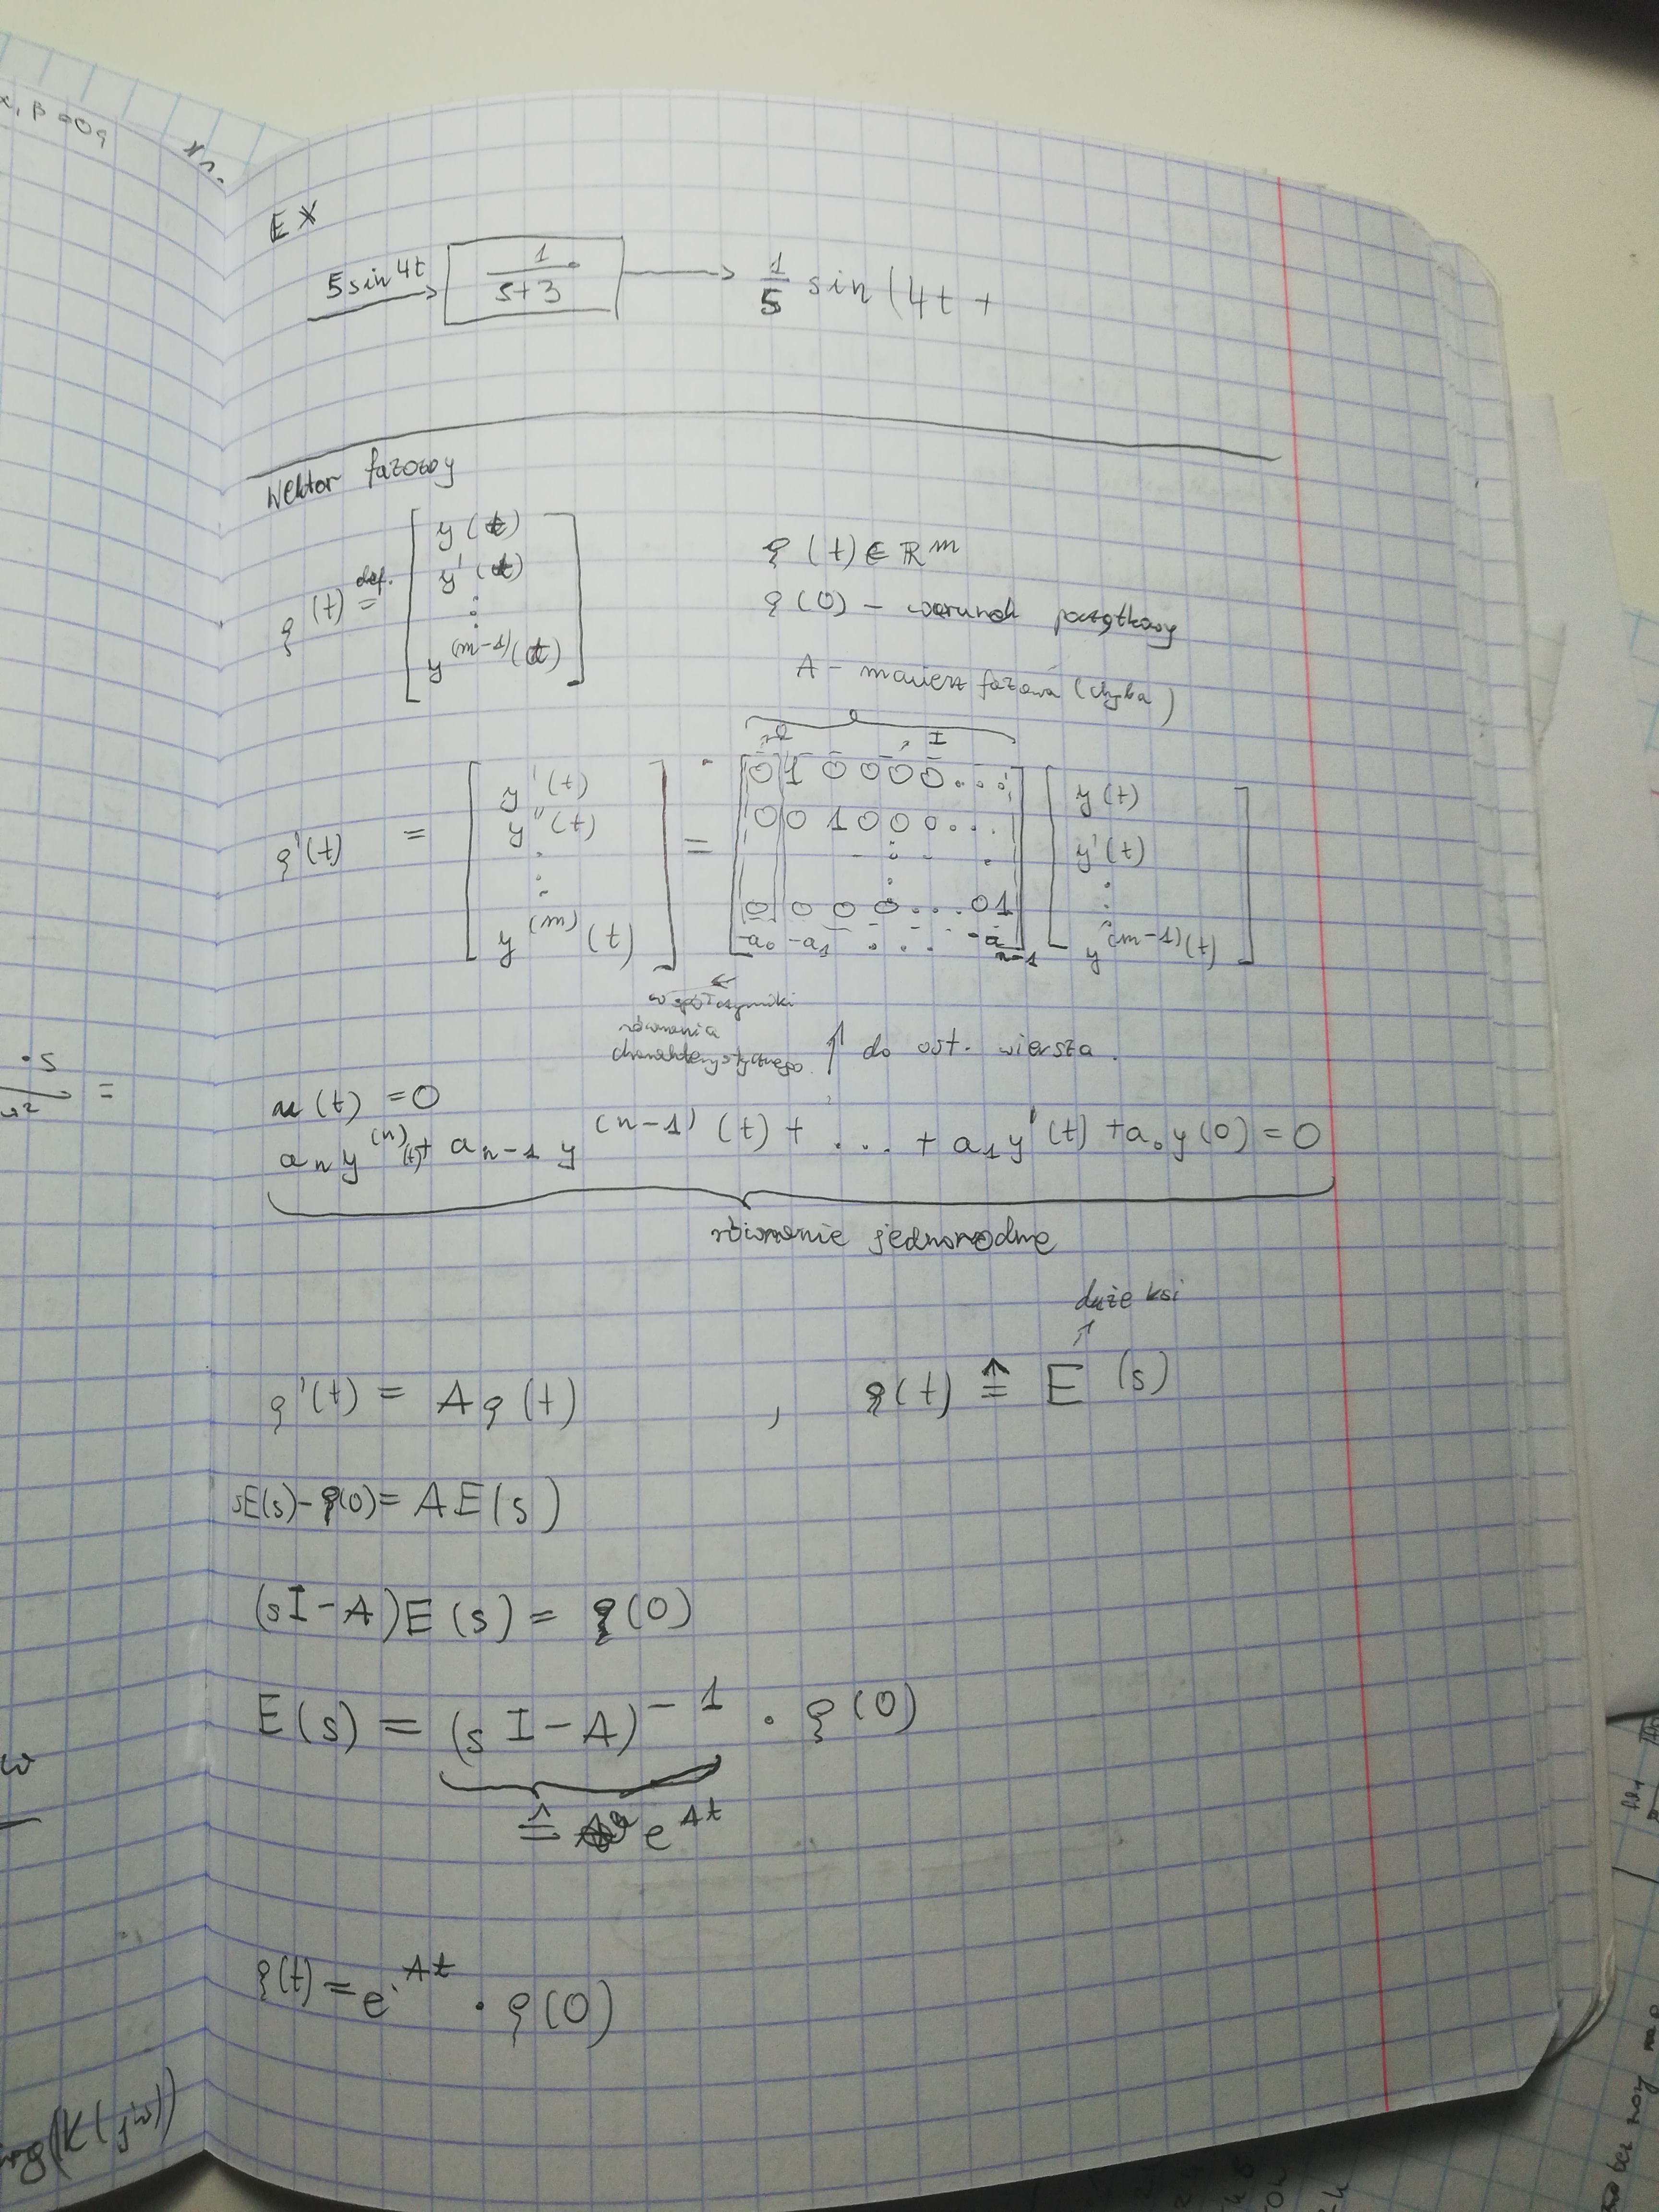 EX
5 sin 4t → [ 1 / (s+3) ] → 1/5 sin (4t +
Wektor fazowy
ξ(t) def. = [ y(t) y'(t) ⋮ y^(m-1)(t) ]
ξ(t) ∈ ℝ^m
ξ(0) – warunek początkowy
A – macierz fazowa (chyba)
I
ξ'(t) = [ y'(t) y''(t) ⋮ y^(m)(t) ] = [ 0 1 0 0 0 0 ... ; 0 0 1 0 0 0 ... ; ⋮ ; 0 0 0 0 ... 0 1 ; -a₀ -a₁ .... -a_{n-1} ] [ y(t) y'(t) ⋮ y^(m-1)(t) ]
współczynniki
równania
charakterystycznego ↑ do ost. wiersza.
u(t) = 0
a_n y^(n)(t) + a_{n-1} y^(n-1)(t) + .... + a₁y'(t) + a₀y(0) = 0
równanie jednorodne
duże ksi
ξ'(t) = Aξ(t) , ξ(t) ≙ E(s)
sE(s) – ξ(0) = AE(s)
(sI – A)E(s) = ξ(0)
E(s) = (sI – A)^-1 · ξ(0)
≙ e^At
ξ(t) = e^At · ξ(0)
α, β = 0,9
· s
=
w
arg(K(jω))